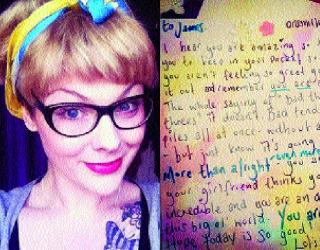 to James.
I hear you are amazing so
you to keep in your pocket so
you aren't feeling so great you
it out and remember you are
The whole saying of "Bad th
threes" it doesn't. Bad tend
piles all at once. without a
- but just know it's going
More than alright - even more
your girlfriend thinks you
incredible and you are an a
this big ol' world. You are
Hope today is so good